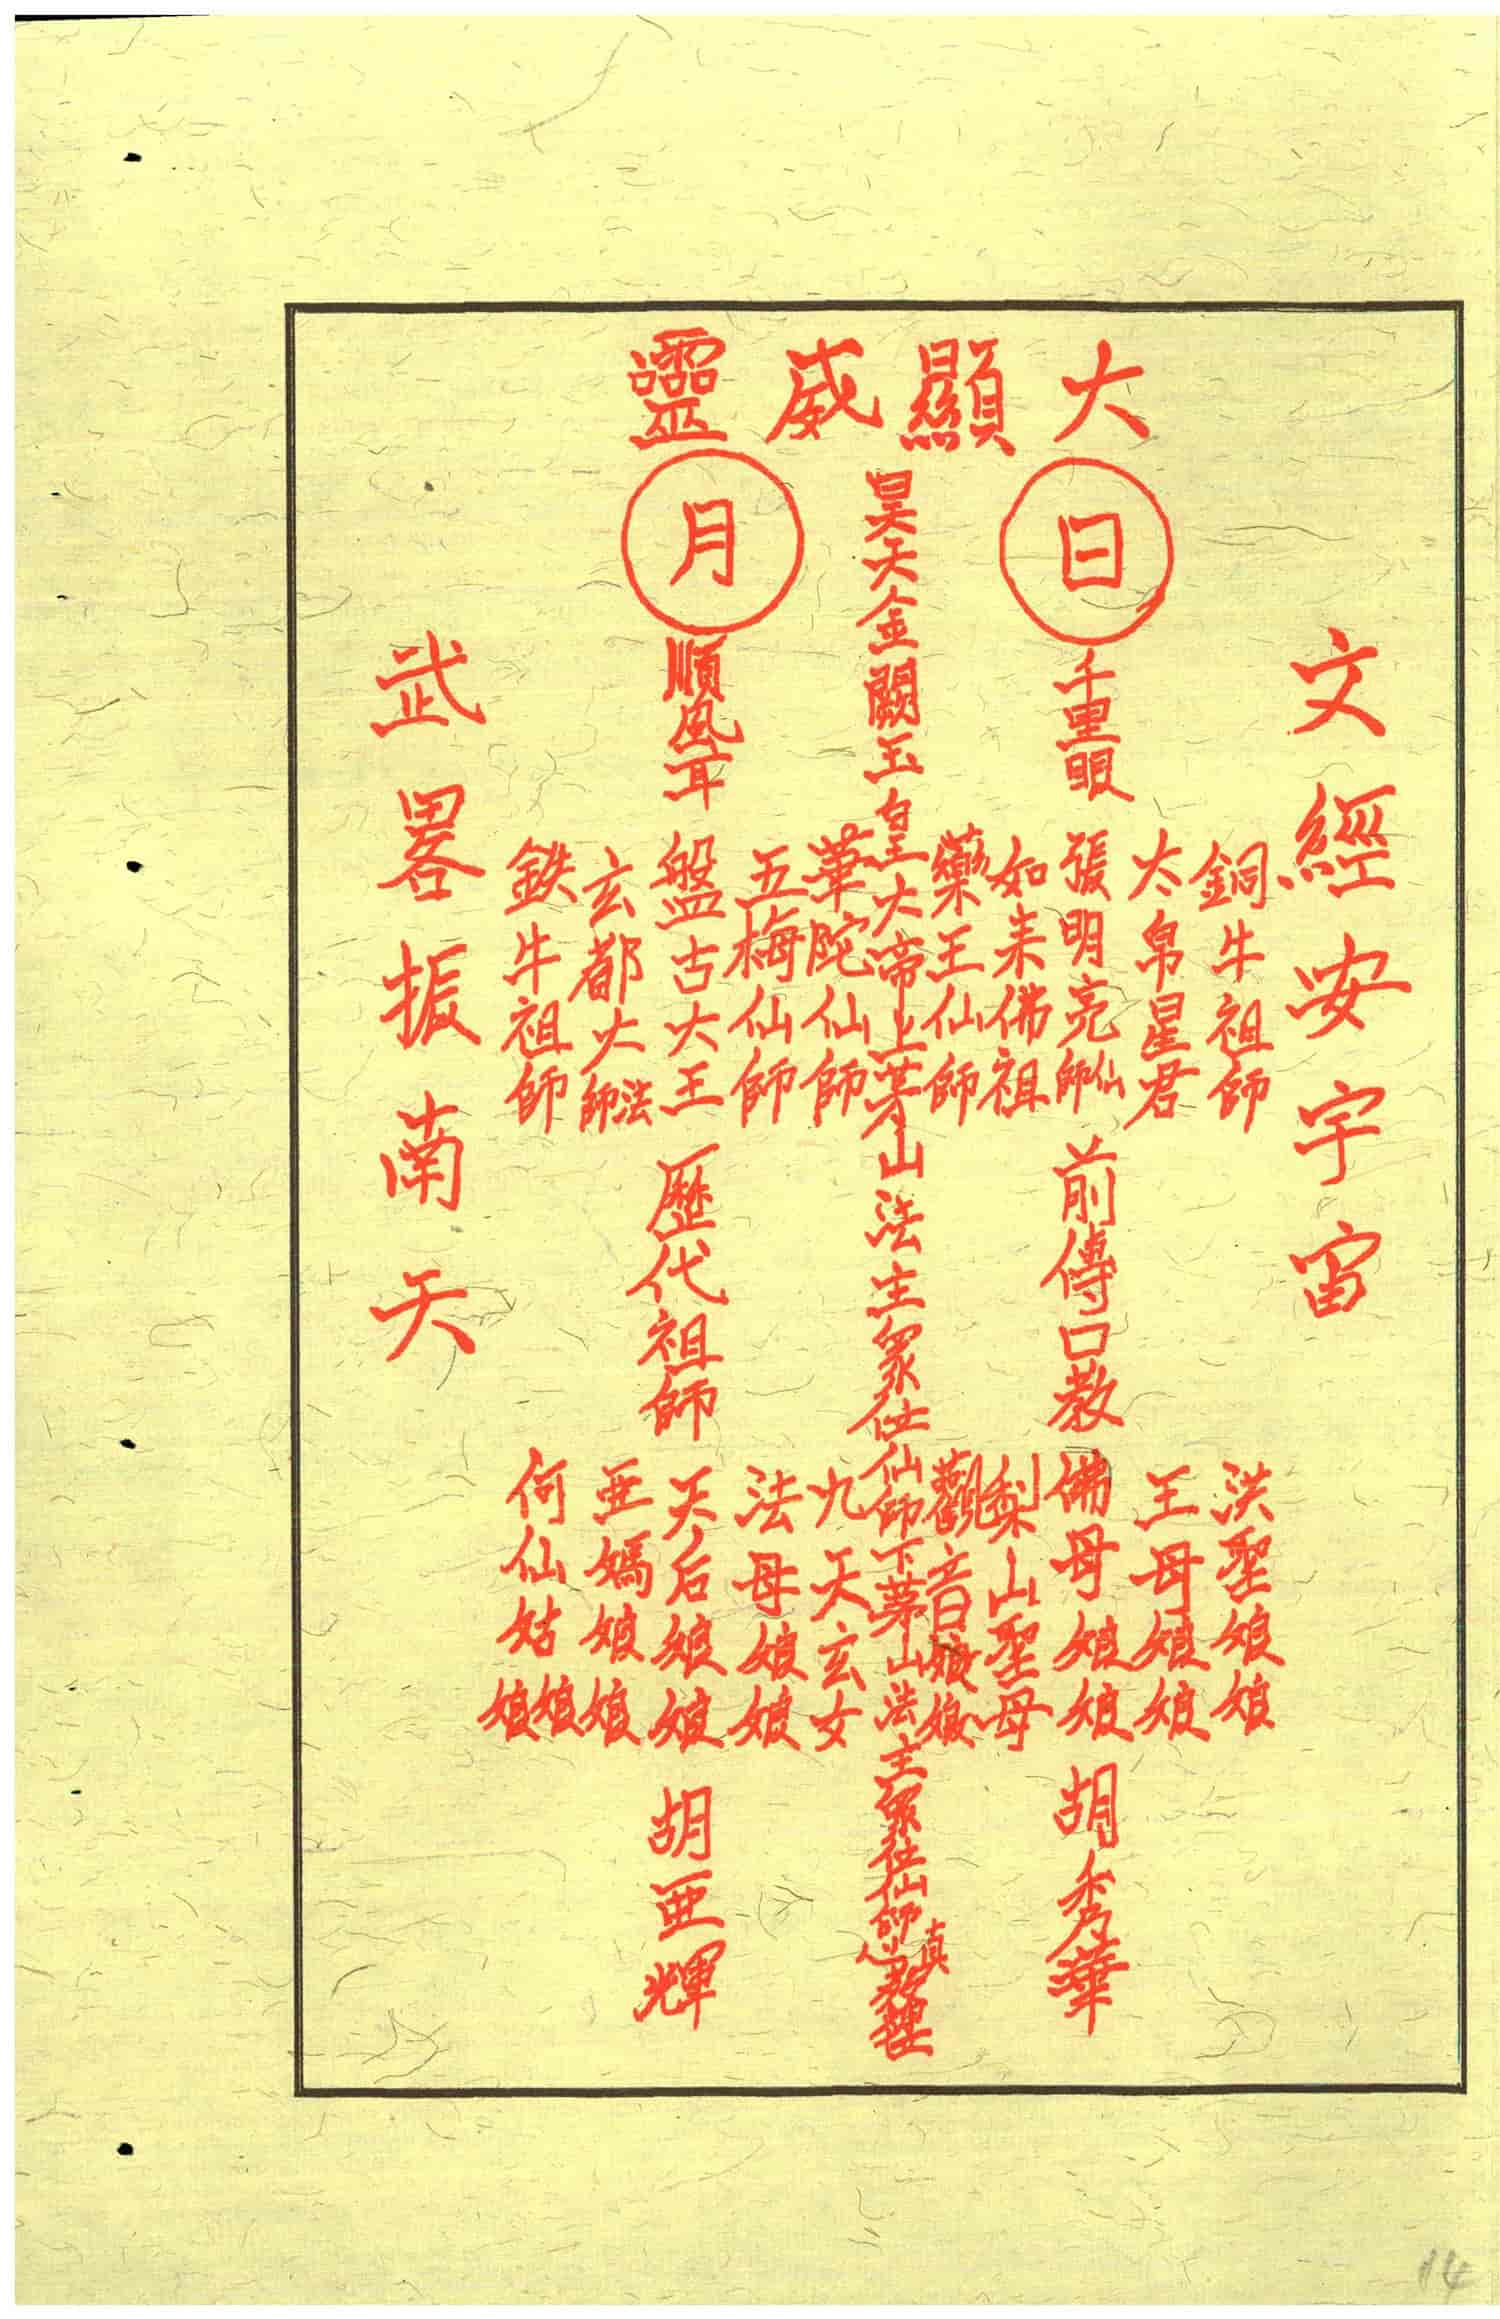 大顯威靈
日
月
文經安宇宙
銅牛祖師
太帛星君
千里眼
張明亮仙師
如來佛祖
藥王仙師
昊天金闕玉皇大帝上茅山法主眾位仙師下茅山法主眾位仙師真
華陀仙師
五梅仙師
順風耳
盤古大王
玄都大法師
鉄牛祖師
武畧振南天
前傳口教
歷代祖師
洪聖娘娘
王母娘娘
佛母娘娘
梨山聖母
觀音娘娘
九天玄女
法母娘娘
天后娘娘
亜媽娘娘
何仙姑娘娘
胡秀華
胡亜輝
14